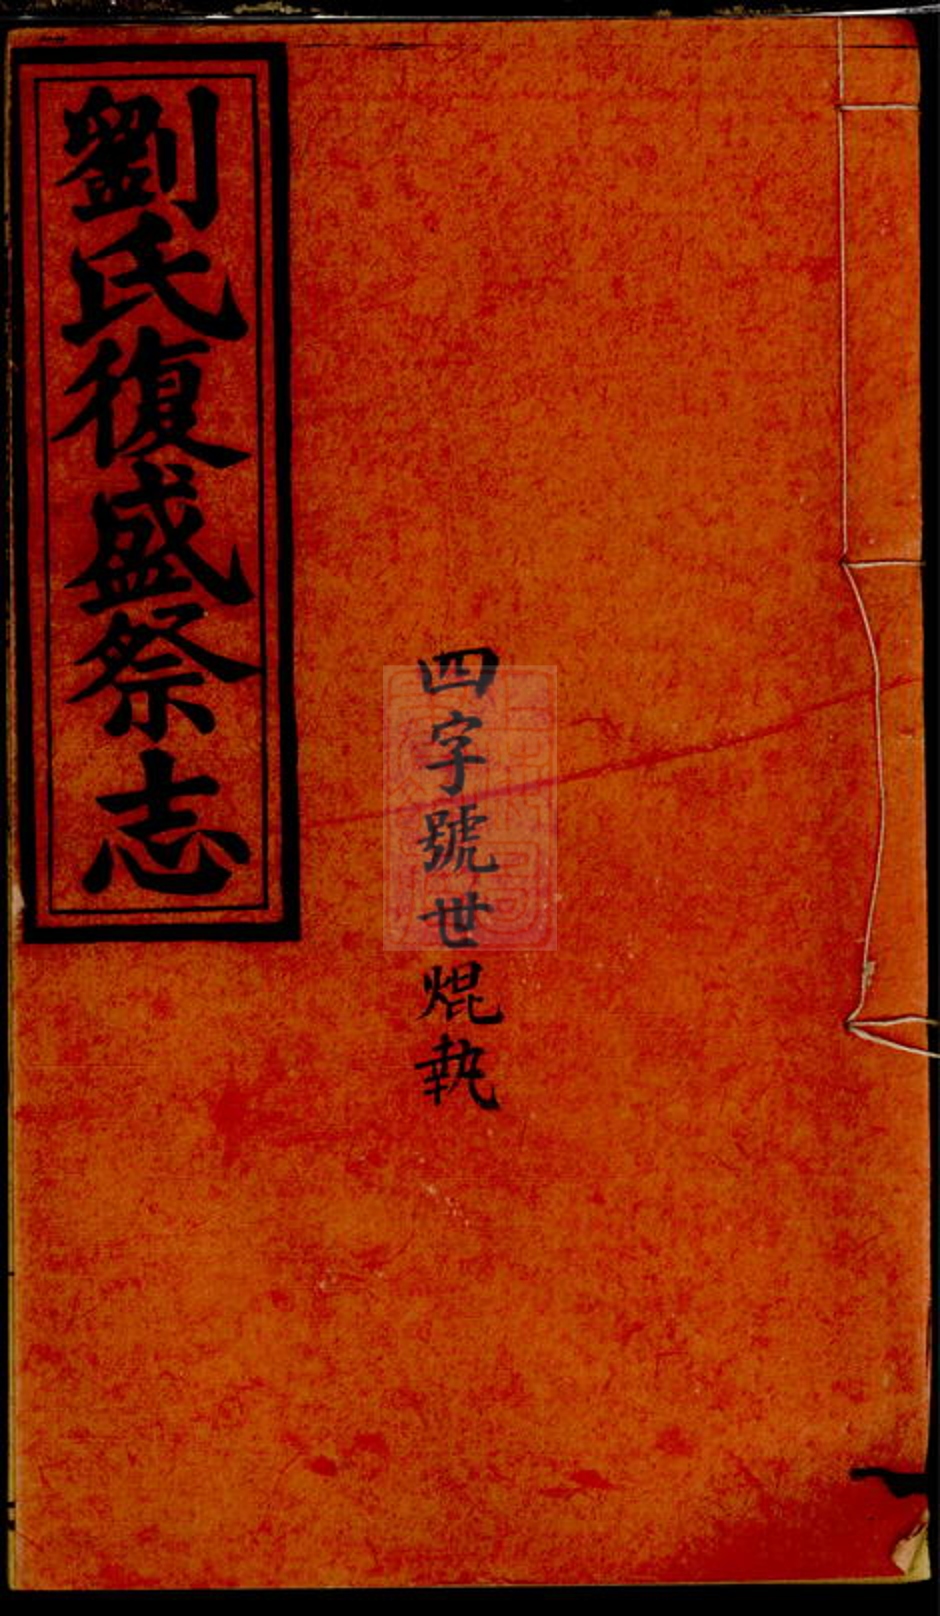 劉氏復盛祭志
四字號世焜執